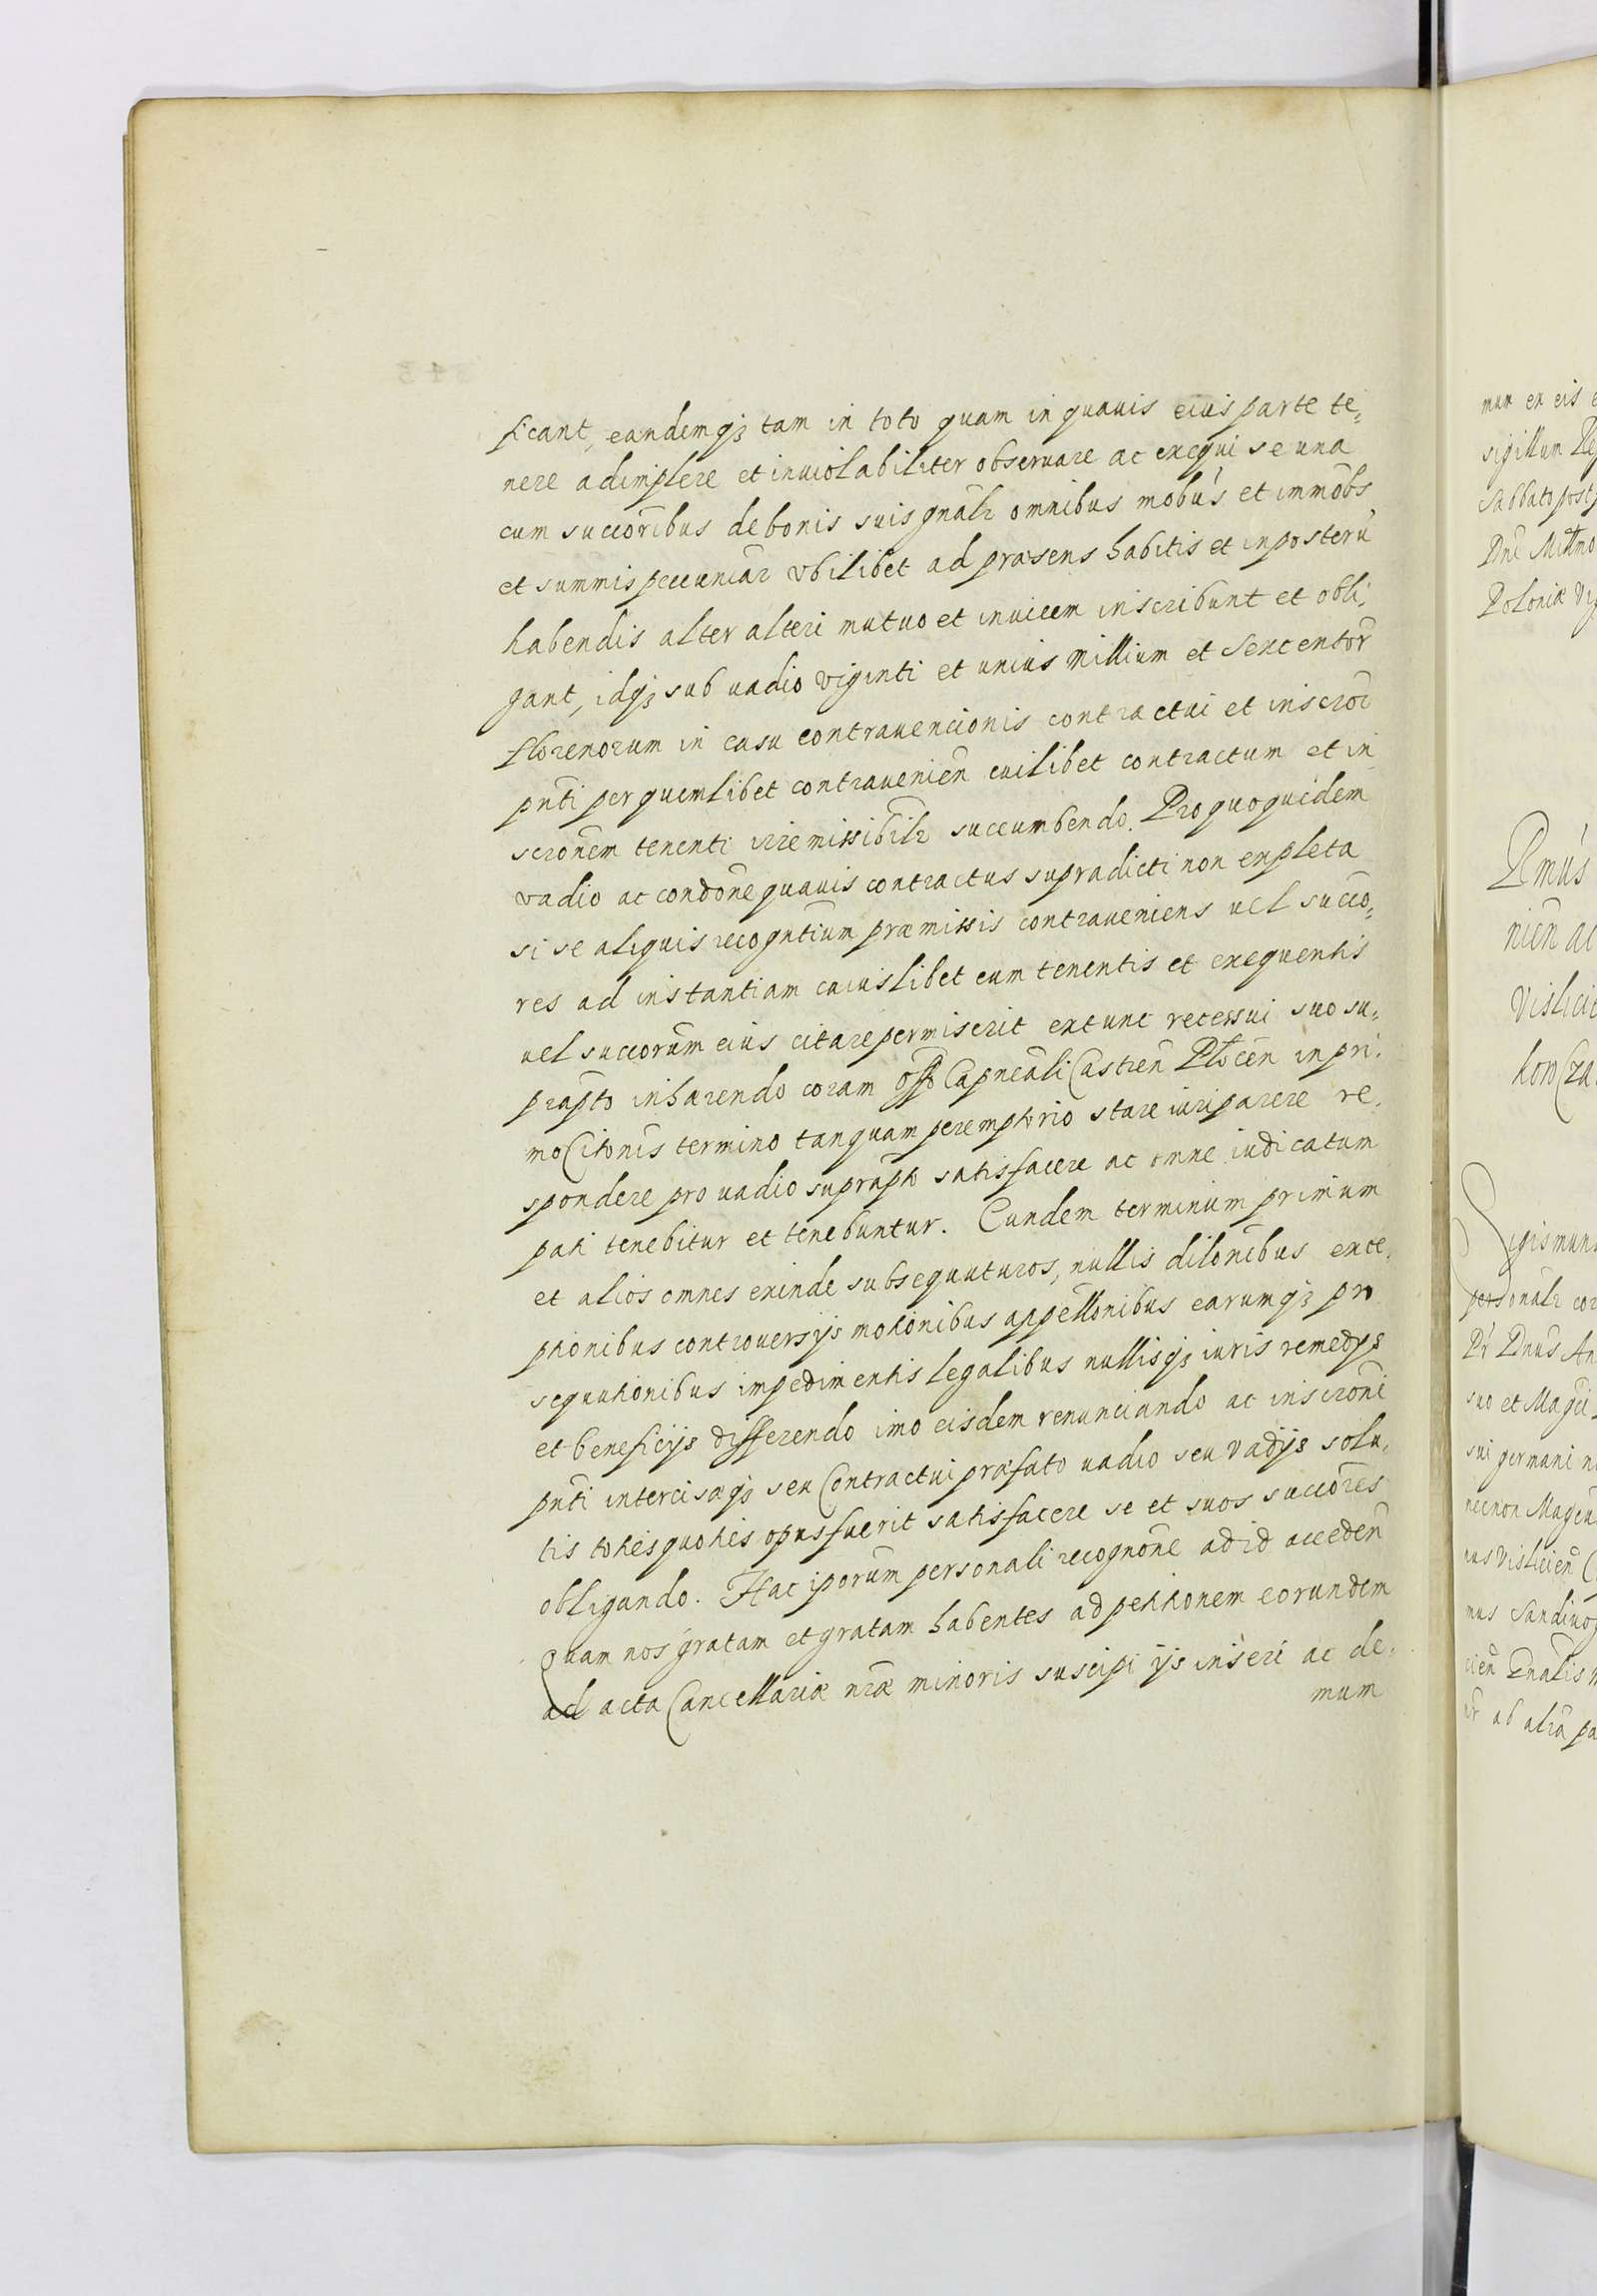 ficant, eandemqꝫ tam in toto quam in quauis eius parte te=
nere adimplere et inuiolabiliter observare ac exequi se una
cum succoribus de bonis suis gnalr omnibus mobus et immobs
et summis pecuniar vbilibet ad præsens habitis et in posterū
habendis alter alteri mutuo et inuicem inscribunt et obli,
gant, idqꝫ sub uadio viginti et unius Millium et Sexcentor
florenorum in casu contrauencionis contractui et inscroi
pnti per quemlibet contravenien cuilibet contractum et in
scronem tenenti irremissibilr succumbendo. Pro quo quidem
vadio ac condone quauis contractus supradicti non expleta
si se aliquis recogntium præmissis contraueniens uel succo=
res ad instantiam cuiuslibet eum tenentis et exequentis
uel succorum eius citare permiserit extunc recessui suo su=
prapto inhærendo coram offo Capneali Castren Plocen in pri.
mo Citonis termino tanquam peremptorio stare iuri parere re.
spondere pro uadio suprapto satisfacere ac omne iudicatum
pati tenebitur et tenebuntur. Eundem terminum primum
et alios omnes exinde subsequuturos, nullis dilonibus exce.
ptionibus controuersijs motionibus appellonibus earumqꝫ pro
sequutionibus impedimentis legalibus nullisqꝫ iuris remedijs
et beneficijs differendo imo eisdem renunciando ac inscroni
pnti intercisæqꝫ seu Contractui præfato uadio seu vadijs solu,
tis toties quoties opus fuerit satisfacere se et suos succores
obligando. Hac iporum personali recognone ad id acceden
Quam nos gratam et gratam habentes ad petitionem eorundem
ad acta Cancellariæ nræ minoris suscipi ijs inseri ac de.
mum
mum ex eis
sigillum
Sabbato post
Dni
Poloniæ
Pmus
nien ac
Vislicie
Sigismun
personalr cor
Pr Dnus An
suo et Magci
sui germani
necnon
nus Vislicien
mus Sandiuog
ab alra pa